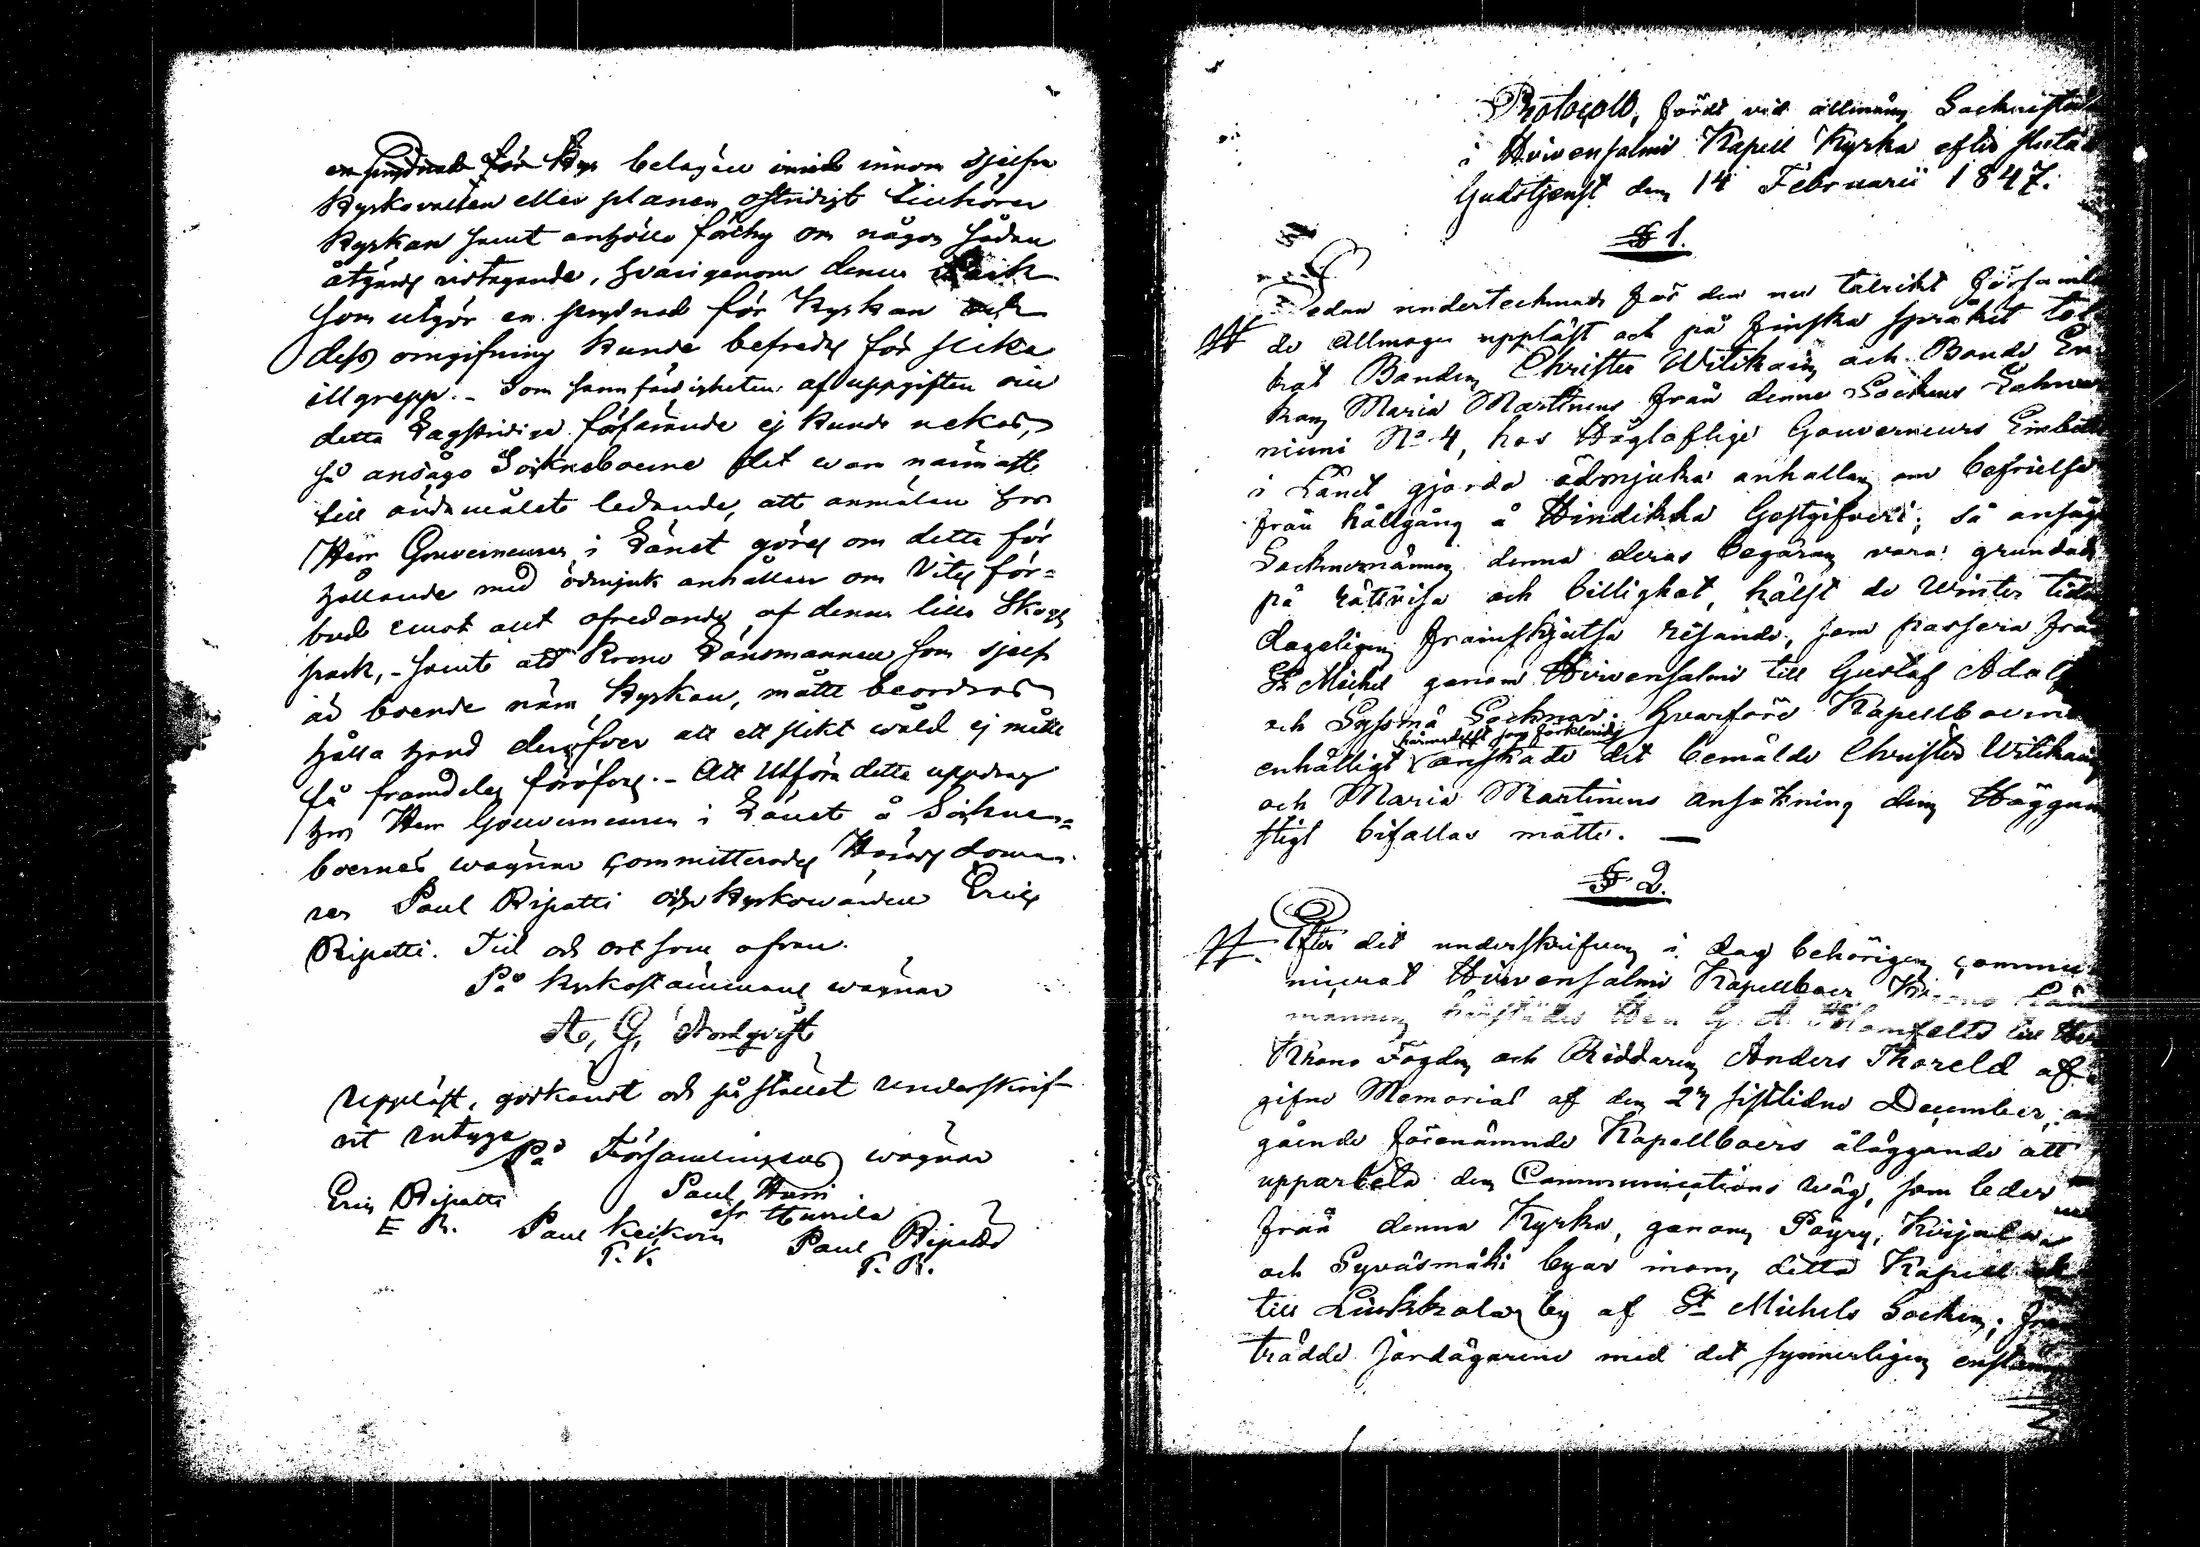 belägen innom sjelfva
Kyrkovallen eller planen ostridigt tillhörer
Kyrkan samt anhöllo förthy om någon sådan
åtgärds vidtagande, hvarigenom denna Park
som utgör en prydnad för Kyrkan och
dess omgifning kunde befredas för slika
illgrepp. - Som sannfärdigheten af uppgiften om
detta Lagstridiga förfarande ej kunde nekas,
så ansågo Sockneboerne det vara närmast
till ändamålet ledande, att anmälan hos
Herr Gouverneuren i Länet göres om detta för
hållande med ödmjuk anhållan om Vites för=
bud emot allt ofredande af denna lilla Skogs
park, - samt att Krono Länsmannen som sjelf
är boende nära Kyrkan, måtte beordras
hålla hand deröfver att ett slikt wåld ej måtte
få framdeles föröfvas. - Att Utföra detta uppdrag
hos Herr Gouverneuren i Länet å Sockne=
boernes wägnar committerades Härads doma
ren Paul Ripatti och Kyrkowärden Eric
Ripatti. Tid och ort som ofvan.
På Kyrkostämmans wägnar
A. G. Nordqvist
Uppläst, godkändt och på stället Underskrif
vit intyga
På Församlingens wägnar
Eric Ripatti
E R.
Paul Harri
ifr Hurila
Paul Keikoin
P. K.
Paul Ripatti
P. R.
Protocoll, fördt vid allmän Sockenstäm
i Hirvensalmi Kapell Kyrka efter slutad
Gudstjenst den 14 Februarii 1847.
§ 1.
Sedan undertecknad för den nu talrikt församla
de Allmogen uppläst och på finska språket tol
kat Bonden Christer Witikain och Bonde En
kan Maria Martinens från denna Sockens Lahna
niemi No 4, hos Högloflige Gouverneurs Embetet
i Länet gjorda ödmjuka anhållan om befrielse
från hållgång å Hindikka Gestgifveri; så ansågo
Sockenemännen denna deras begäran vara grundad
på rättvisa och billighet, hälst de Winter tiden
dageligen framskjutsa resande, som passera från
St Michel genom Hirvensalmi till Gustaf Adolfs
och Sysmä Socknar; hvarföre Kapellboerne
härmedelst som förklarades
enhälligt önskade det bemälde Christer Witikains
och Maria Martinens ansökning den Höggun
stigt bifallas måtte. —
§ 2.
Efter det underskrifven i dag behörigen commu
nicerat Hirvensalmi Kapellboer Krono Läns
mannen härstädes Herr G. A. Blomfelts till Herr
Krono Fogden och Riddaren Anders Thoreld af
gifne Memorial af den 27 sistlidne December, an
gående förenämnde Kapellboers åläggande att
upparbeta den Communications wäg, som leder
från denna Kyrka, genom Pöyry, Kirjala
och Syväsmäki byar inom detta Kapell
till Liukkola by af St Michels Socken; fram
trädde Jordägarene med det synnerligen enstämm